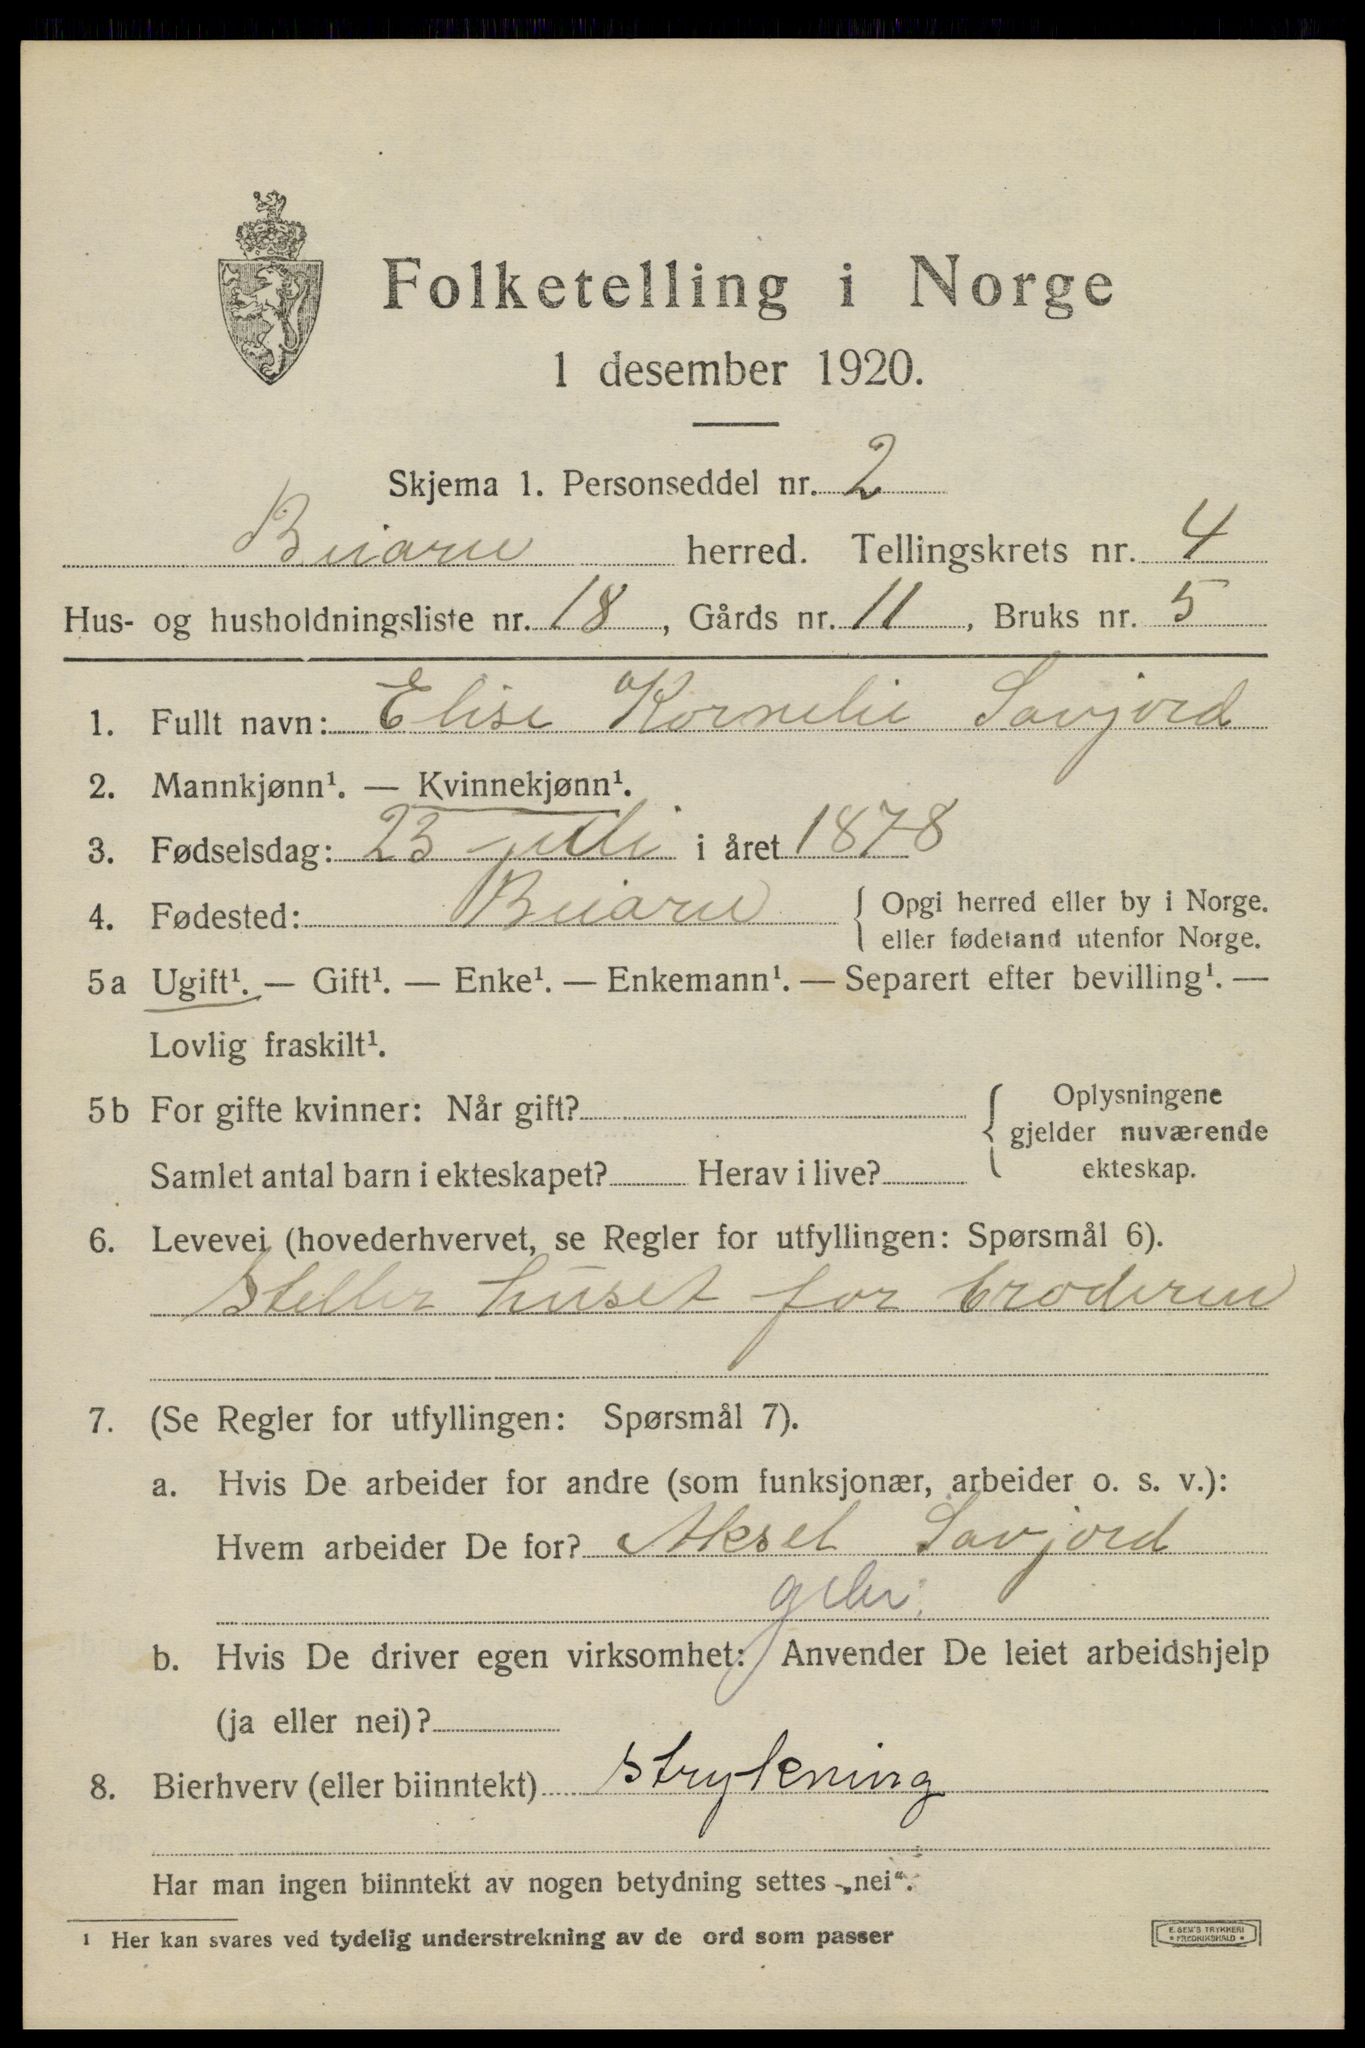 Folketelling i Norge
1 desember 1920.
Skjema 1. Personseddel nr. 2
Beiarn herred. Tellingskrets nr. 4
Hus- og husholdningsliste nr. 18, Gårds nr. 11, Bruks nr. 5
1. Fullt navn: Elise Kornelie Savjord
2. Mannkjønn¹. — Kvinnekjønn¹.
3. Fødselsdag: 23 juli i året 1878
4. Fødested: Beiarn { Opgi herred eller by i Norge.
eller fødeland utenfor Norge.
5a Ugift¹. — Gift¹. — Enke¹. — Enkemann¹. — Separert efter bevilling¹. —
Lovlig fraskilt¹.
5b For gifte kvinner: Når gift? { Oplysningene
gjelder nuværende
ekteskap.
Samlet antal barn i ekteskapet? Herav i live?
6. Levevei (hovederhvervet, se Regler for utfyllingen: Spørsmål 6).
Steller huset for broderen
7. (Se Regler for utfyllingen: Spørsmål 7).
a. Hvis De arbeider for andre (som funksjonær, arbeider o. s. v.):
Hvem arbeider De for? Aksel Savjord
gbr.
b. Hvis De driver egen virksomhet: Anvender De leiet arbeidshjelp
(ja eller nei)?
8. Bierhverv (eller biinntekt) strykning
Har man ingen biinntekt av nogen betydning settes „nei“.
¹ Her kan svares ved tydelig understrekning av de ord som passer
E. SEM'S TRYKKERI
* FREDRIKSHALD *